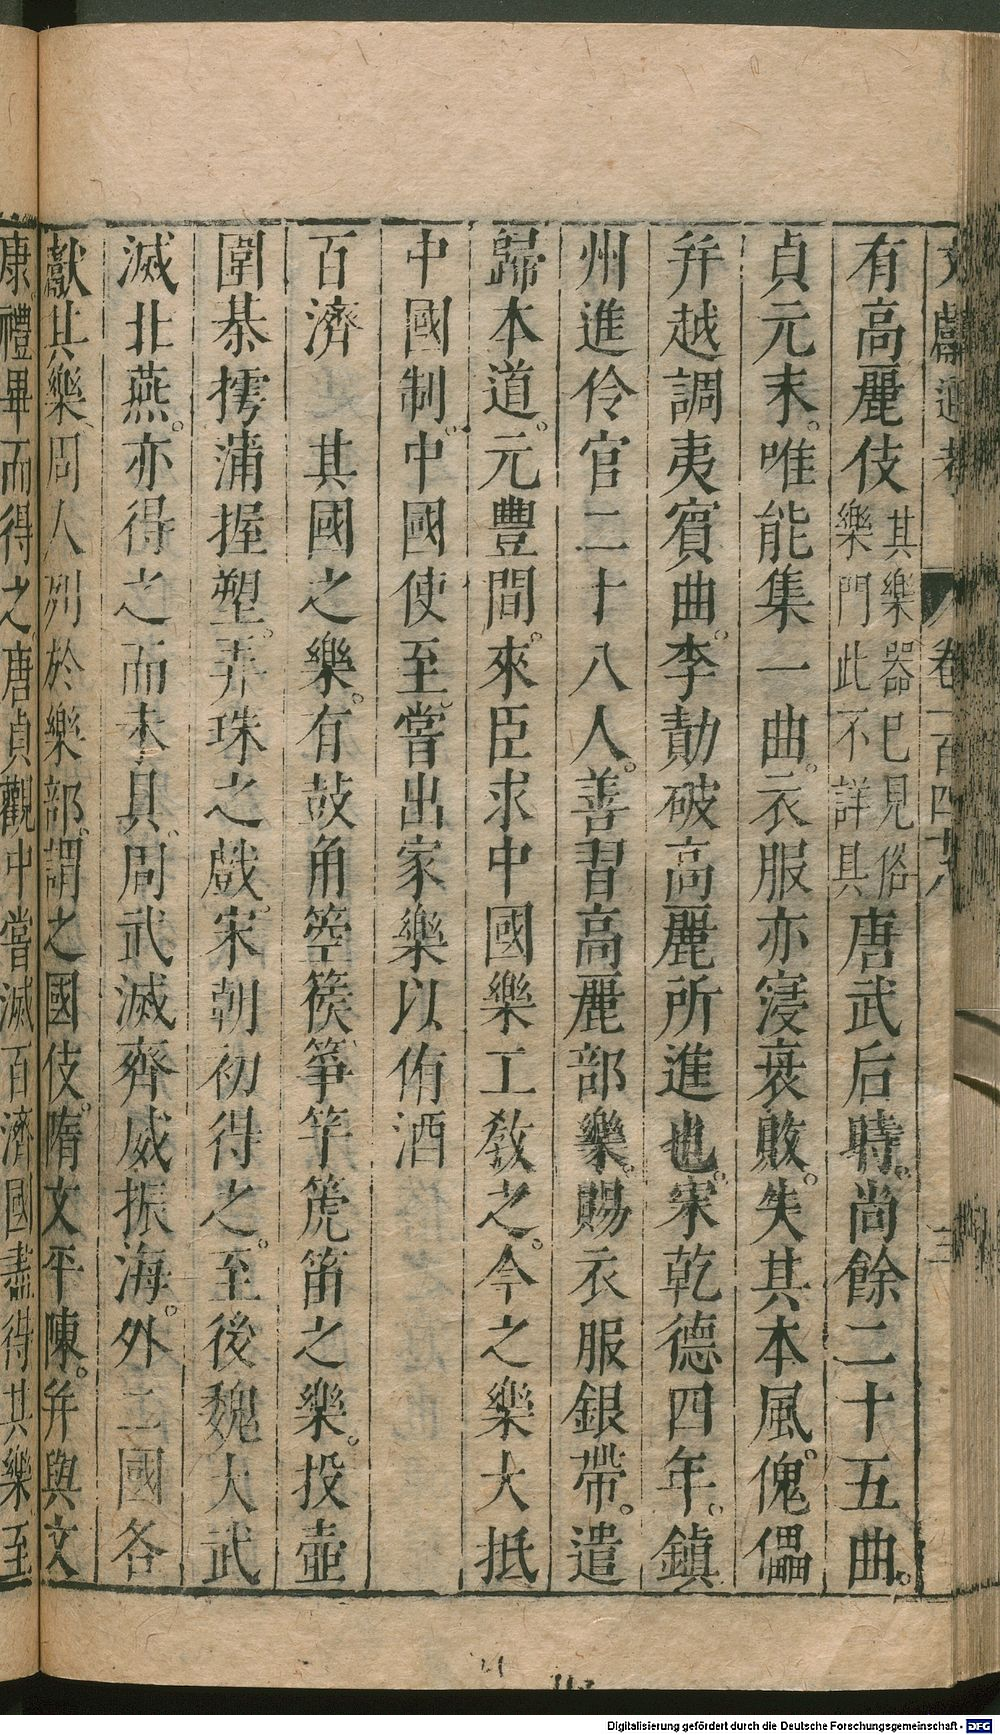 文獻通考 卷一百四十八 三
有高麗伎其樂器已見俗樂門此不詳具唐武后時。尚餘二十五曲。
貞元末。唯能集一曲。衣服亦寖衰敗。失其本風。傀儡
幷越調夷賓曲。李勣破高麗所進也。宋乾德四年。鎮
州進伶官二十八人。善習高麗部樂。賜衣服銀帶。遣
歸本道。元豐間。來臣求中國樂工教之。今之樂大抵
中國制。中國使至。嘗出家樂以侑酒
百濟 其國之樂。有鼓角箜篌箏竽箎笛之樂。投壺
圍棊摴蒲握塑。弄珠之戲。宋朝初得之。至後魏大武
滅北燕。亦得之而未具。周武滅齊威振海。外二國各
獻其樂。周人列於樂部。謂之國伎。隋文平陳。幷與文
康禮畢而得之。唐貞觀中嘗滅百濟國盡得其樂至
Digitalisierung gefördert durch die Deutsche Forschungsgemeinschaft - DFG